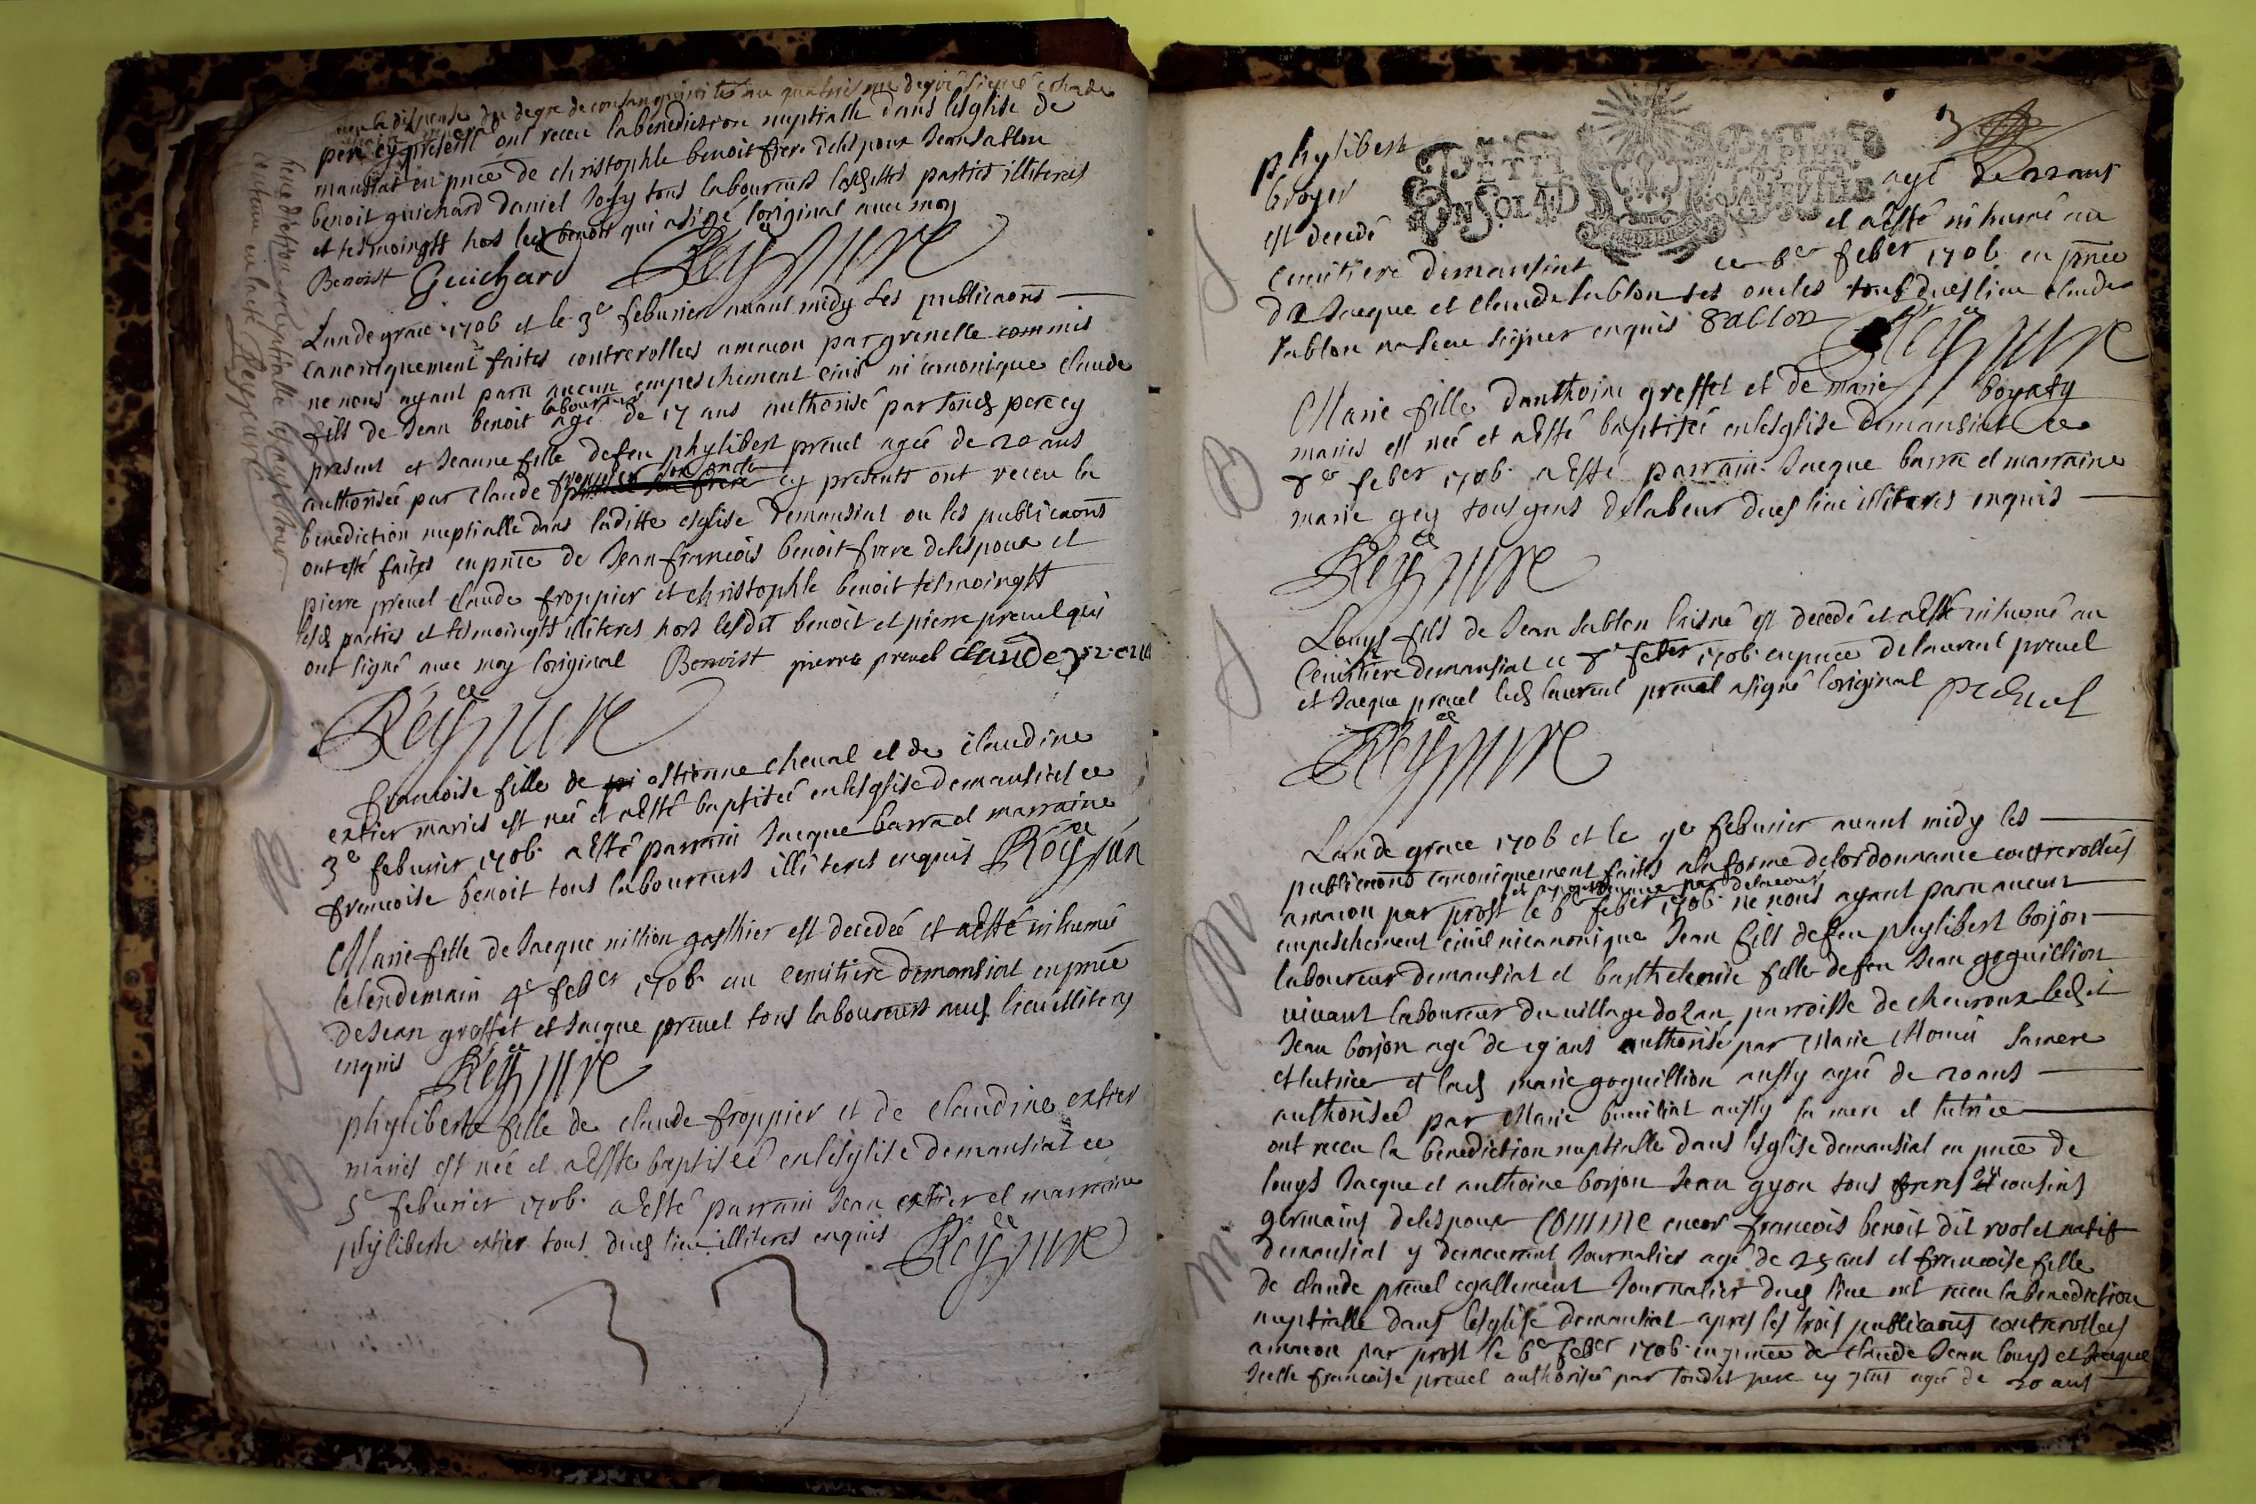 veu la dispense du degre de consanguinité au quatriesme degré signé
pere cy present ont receu la benediction nuptialle dans lesglise de
mansiat en pnce de christophle benoit frere delespoux Jean sablon
benoit guichard daniel Josy tous laboureurs lesdittes parties illiteres
et tesmoingts hors led benoit qui a signé loriginal avec moy
Benoist Guichard Reyssure
Lan de grace 1706 et le 3e feburier avant midy les publicaons
canoniquement faites controrollees a macon par grenelle commis
ne nous ayant paru aucun empeschement civil ni canonique claude
fils de Jean benoit laboureur agé de 17 ans authorisé par sond pere cy
present et Jeanne fille defeu phylibert prevel agée de 20 ans
authorisée par claude froppier son oncle cy presents ont receu la
benediction nuptialle dans laditte esglise demansiat ou les publicaons
ont esté faites en pnce de Jean francois benoit frere delespoux et
pierre prevel claude froppier et christophle benoit tesmoingts
lesd parties et tesmoingts illiteres hors lesdit benoit et pierre prevel qui
ont signé avec moy loriginal Benoist pierre prevel claude
Reyssure
francoise fille de estienne cheval et de claudine
extier mariés est née et a Esté baptisée en lesglise demansiat ce
3e feburier 1706 a Esté parrain Jacque barra el marraine
francoise benoit tous laboureurs illiteres enquis
Marie fille de Jacque nillion gasthier est decedée et a Esté inhumée
le lendemain 4e feber 1706 au cemitiere demansiat en pnce
de Jean greffet et Jacque prevel tous laboureurs aud lieu illiteres
enquis Reyssure
phyliberte fille de claude froppier et de claudine extier
mariés est née et a Este baptisée en lesglise demansiat ce
5e feburier 1706 a Esté parrain Jean extier el marraine
phyliberte extier tous dud lieu illiteres enquis Reyssure
3
phylibert
broyer agé de 22 ans
est decedé et a Esté inhumé au
cemitiere demansiat ce 6e feber 1706 en pnce
de Jacque et claude sablon ses oncles tous dud lieu claude
sablon na sceu signer enquis Sablon Reyssure
Marie fille danthoine greffet et de marie boyaty
mariés est née et a Esté baptisée en lesglise demansiat ce
8e feber 1706 a Esté parrain Jacque barra el marraine
marie gey tous gens de labeur dud lieu illiteres enquis
Reyssure
Louys fils de Jean sablon laisné est decedé et a Esté inhumé au
cemitiere demansiat ce 8e feber 1706 en pnce delaurent prevel
et Jacque prevel led laurent prevel a signé loriginal prevel
Reyssure
Lan de grace 1706 et le 9e feburier avant midy les
publicaons canoniquement faites a la forme delordonnance controrollées
amacon par prost le 6e feber 1706 ne nous ayant paru aucun
empeschement civil ni canonique Jean fils defeu phylibert borjon
laboureur demansiat et barthelemie fille defeu Jean goguillion
vivant laboureur du village dozan parroisse de chevroux ledit
Jean borjon agé de 19 ans authorisé par Marie Monin sa mere
et tutrice et lad marie goguillion aussy agée de 20 ans
authorisée par Marie aussy sa mere et tutrice
ont receu la benediction nuptialle dans lesglise demansiat en pnce de
louys Jacque et anthoine borjon Jean gyon tous freres et cousins
germains delespoux comme encor francois benoit dit rostet natif
demansiat y demeurant Journalier agé de 25 ans et francoise fille
de claude prevel egallement Journalier dud lieu ont receu la benediction
nuptialle dans lesglise demansiat apres les trois publicaons controrollées
amacon par prost le 6e feber 1706 en pnce de claude Jean louys et Jacque
Icelle francoise prevel authorisée par sondit pere cy pnt agée de 20 ans